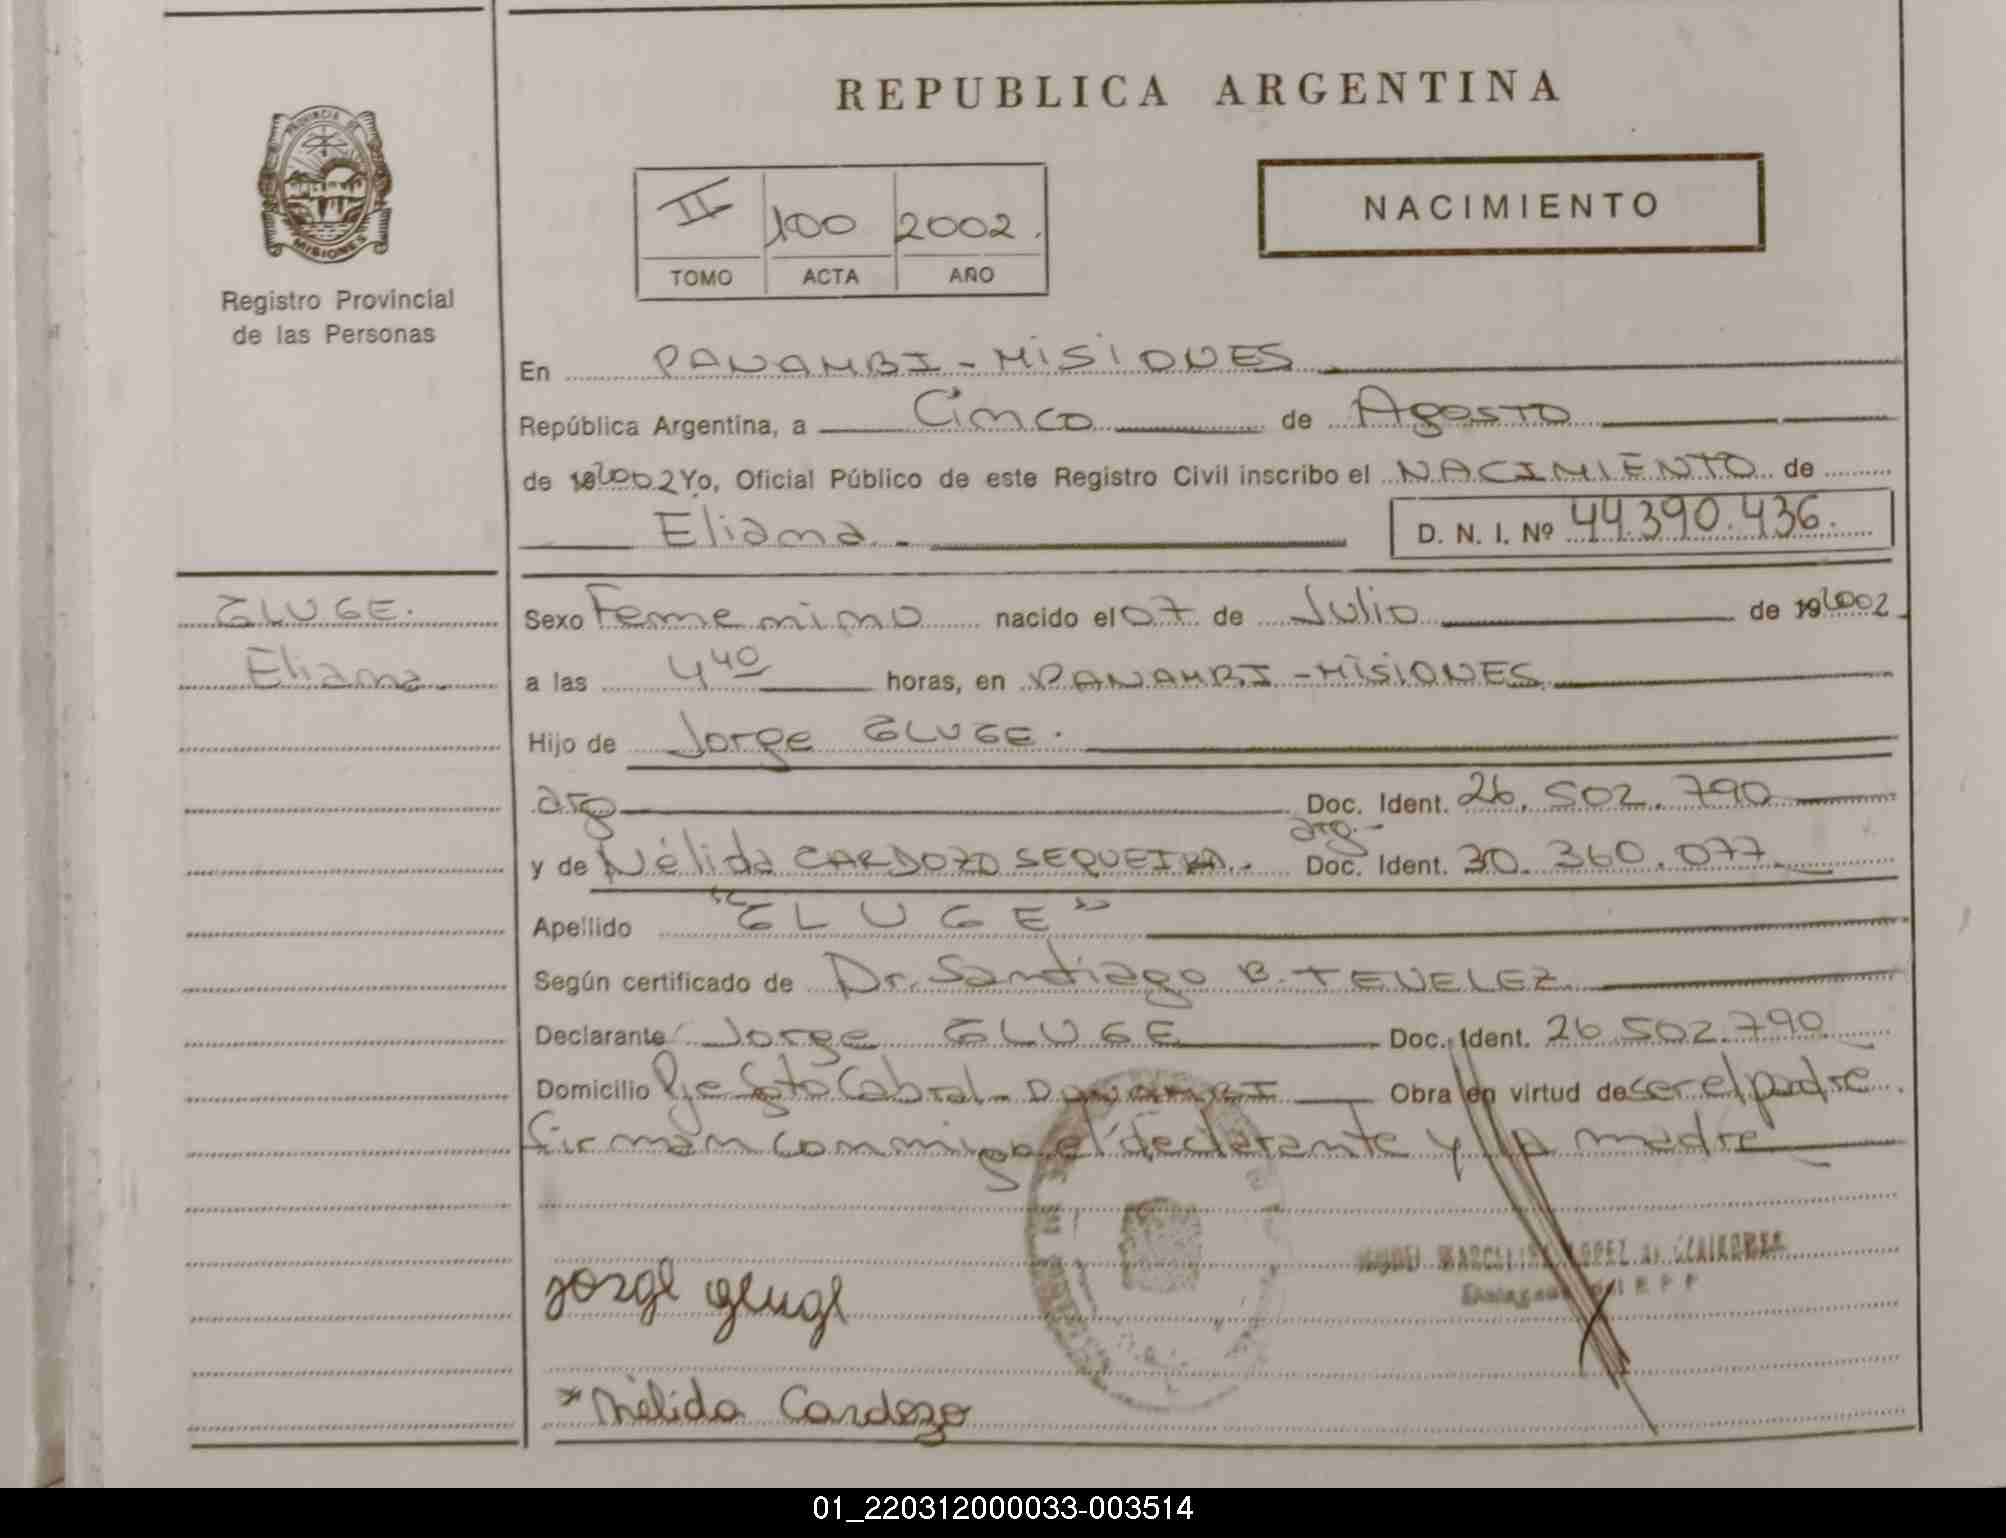 REPUBLICA ARGENTINA
PROVINCIA DE
MISIONES
Registro Provincial
de las Personas
II 100 2002.
TOMO ACTA AÑO
NACIMIENTO
En PANAMBI - MISIONES
República Argentina, a Cinco de Agosto
de 192002 Yo, Oficial Público de este Registro Civil inscribo el NACIMIENTO de
Eliana.- D. N. I. Nº 44.390.436.
GLUGE.
Eliana
Sexo Femenino nacido el 07 de Julio de 192002
a las 4 40 horas, en PANAMBI - MISIONES
Hijo de Jorge GLUGE.
arg Doc. Ident. 26.502.790
arg.-
y de Nélida CARDOZO SEQUEIRA.- Doc. Ident. 30.360.077
Apellido "GLUGE"
Según certificado de Dr. Santiago B. TEVELEZ
Declarante Jorge GLUGE Doc. Ident. 26.502.790
Domicilio Pje Sgto Cabral - PANAMBI Obra en virtud de ser el padre
firman conmigo el declarante y la madre
LOPEZ
Jorge gluge
*Nélida Cardozo
01_220312000033-003514